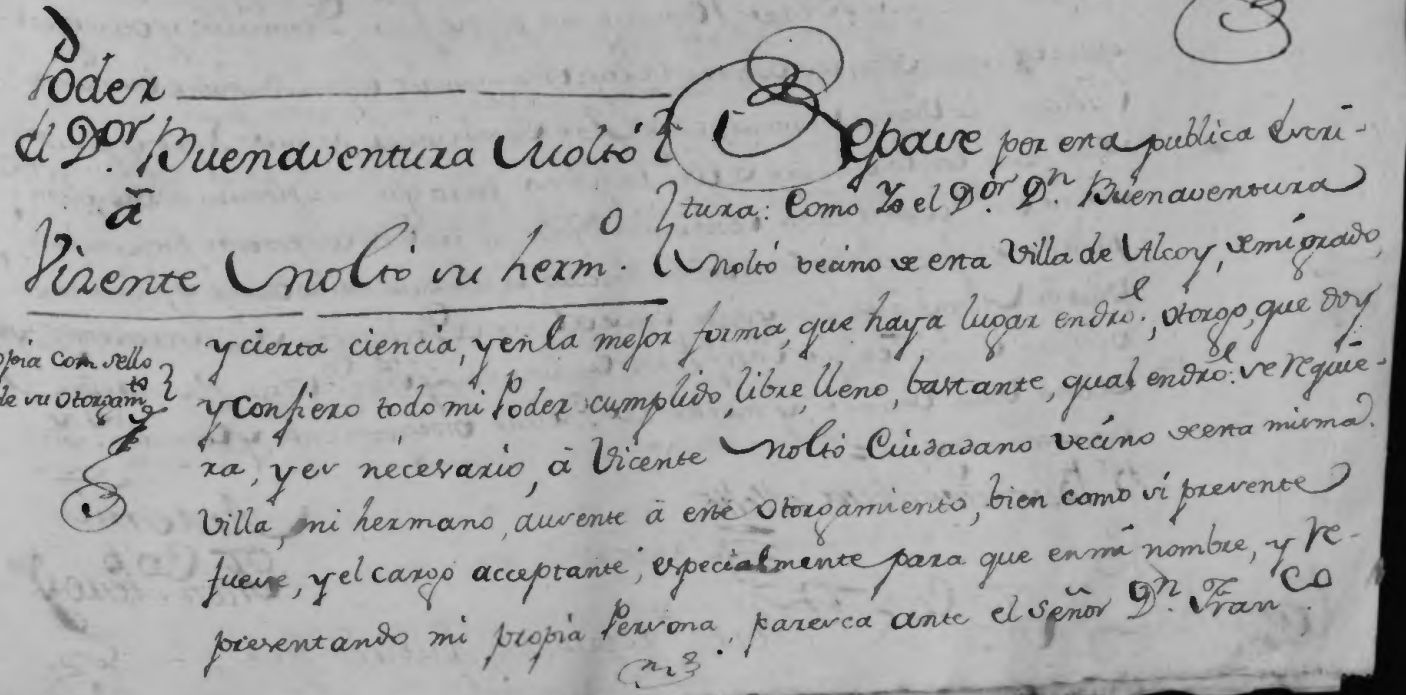 Poder
el D.or Buenaventura Moltó
à
Vizente Moltó su herm.o
Copia con sello
de su otorgam.to
Sepase por esta publica Escri-
tura: Como Yo el D.or D.n Buenaventura
Moltó vecino de esta Villa de Alcoy, de mi grado,
y cierta ciencia, y en la mejor forma, que haya lugar en dro.l, otorgo, que doy
y confiero todo mi Poder cumplido, libre, lleno, bastante, qual en dro.l se requie-
ra, y es necesario, à Vicente Moltó Ciudadano vecino de esta misma
Villa, mi hermano, ausente à este otorgamiento, bien como si presente
fuese, y el cargo acceptante, especialmente para que en mi nombre, y re-
presentando mi propia Persona, paresca ante el Señor D.n Fran.co